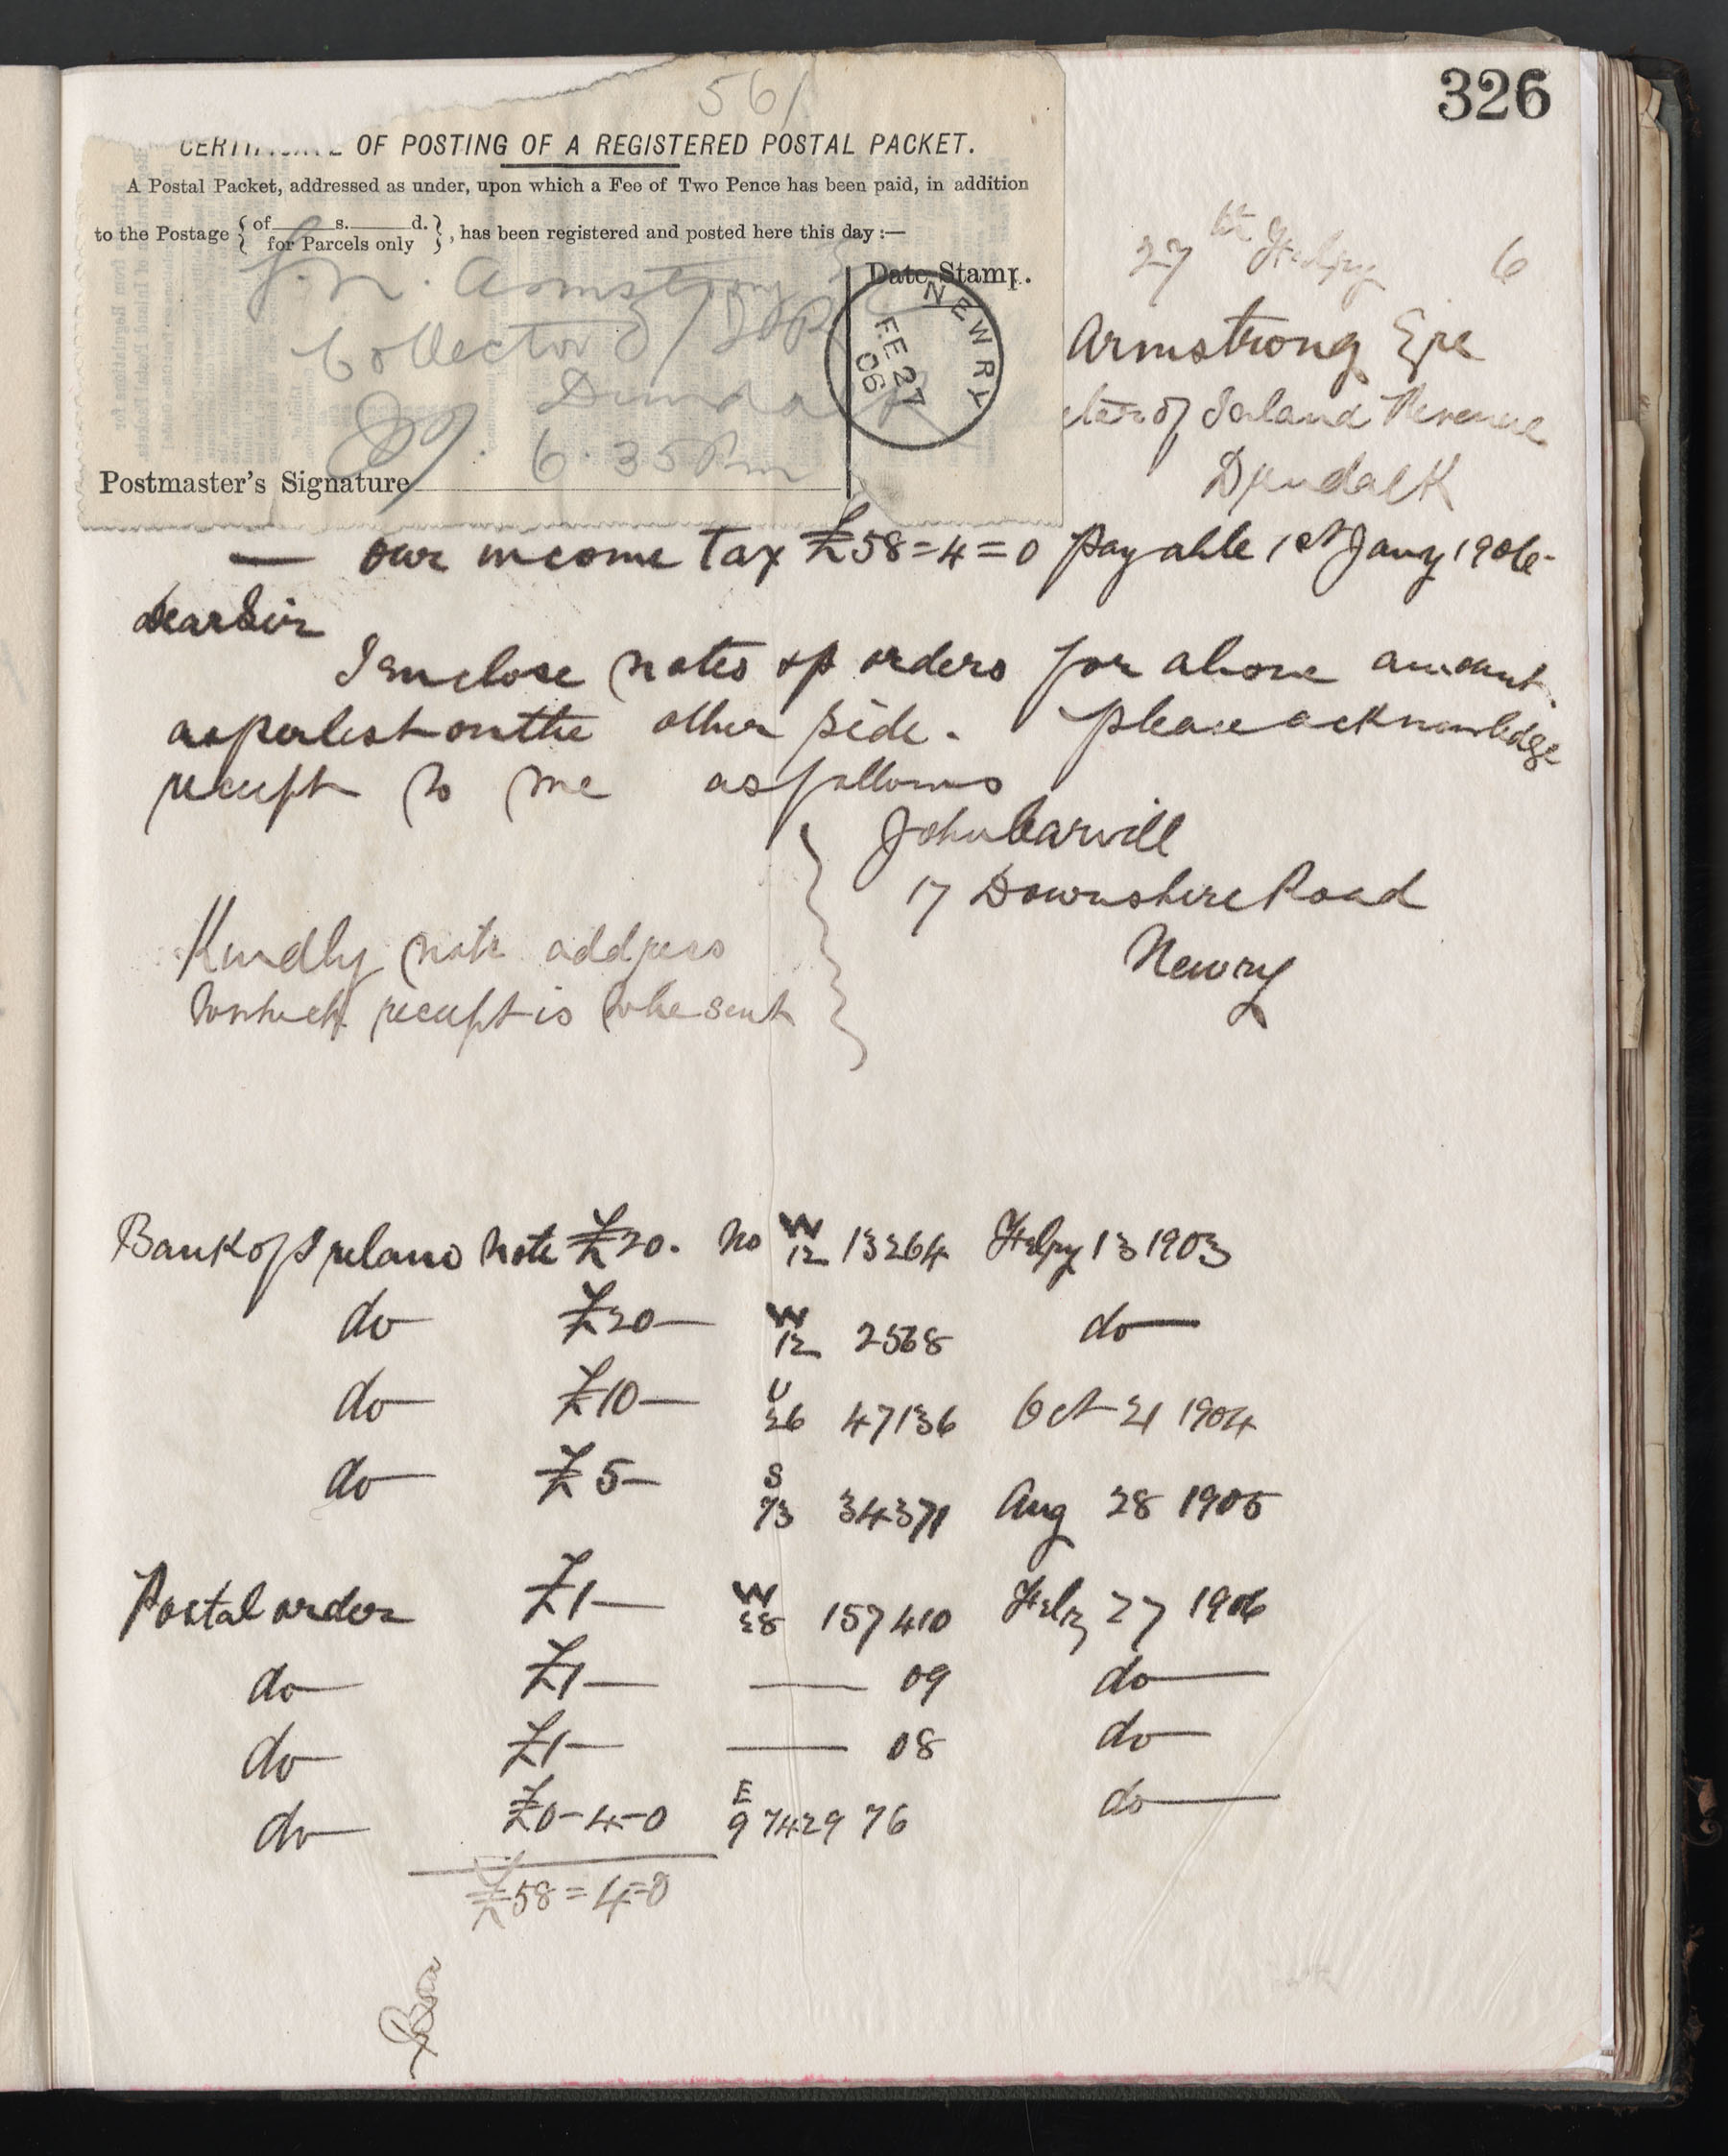 326
561
CERTIFICATE OF POSTING OF A REGISTERED POSTAL PACKET.
A Postal Packet, addressed as under, upon which a Fee of Two Pence has been paid, in addition
to the Postage { of s. d. for Parcels only }, has been registered and posted here this day :—
Date Stamp.
Armstrong
Collector
Dundalk
6.35 Pm
Postmaster's Signature
NEWRY
FE 27
06
27th Feby 6
Armstrong Esqre
ctor of Inland Revenue
Dundalk
— our income Tax £58=4=0 payable 1st Jany 1906-
dear Sir
I enclose notes & p orders for above amount.
as per list on the other side. please acknowledge
receipt to me as follows
John Carvill
17 Downshire Road
Newry
Kindly note address
to which receipt is to be sent
Bank of Ireland note £20. No W 12 13264 Feby 13 1903
do £20— W 12 2568 do—
do £10— U 26 47136 Oct 21 1904
do £5— S 73 34371 Aug 28 1905
Postal order £1— W 28 157410 Feby 27 1906
do £1— —— 09 do—
do £1— —— 08 do—
do £0-4-0 E 9 742976 do—
£58=4=0